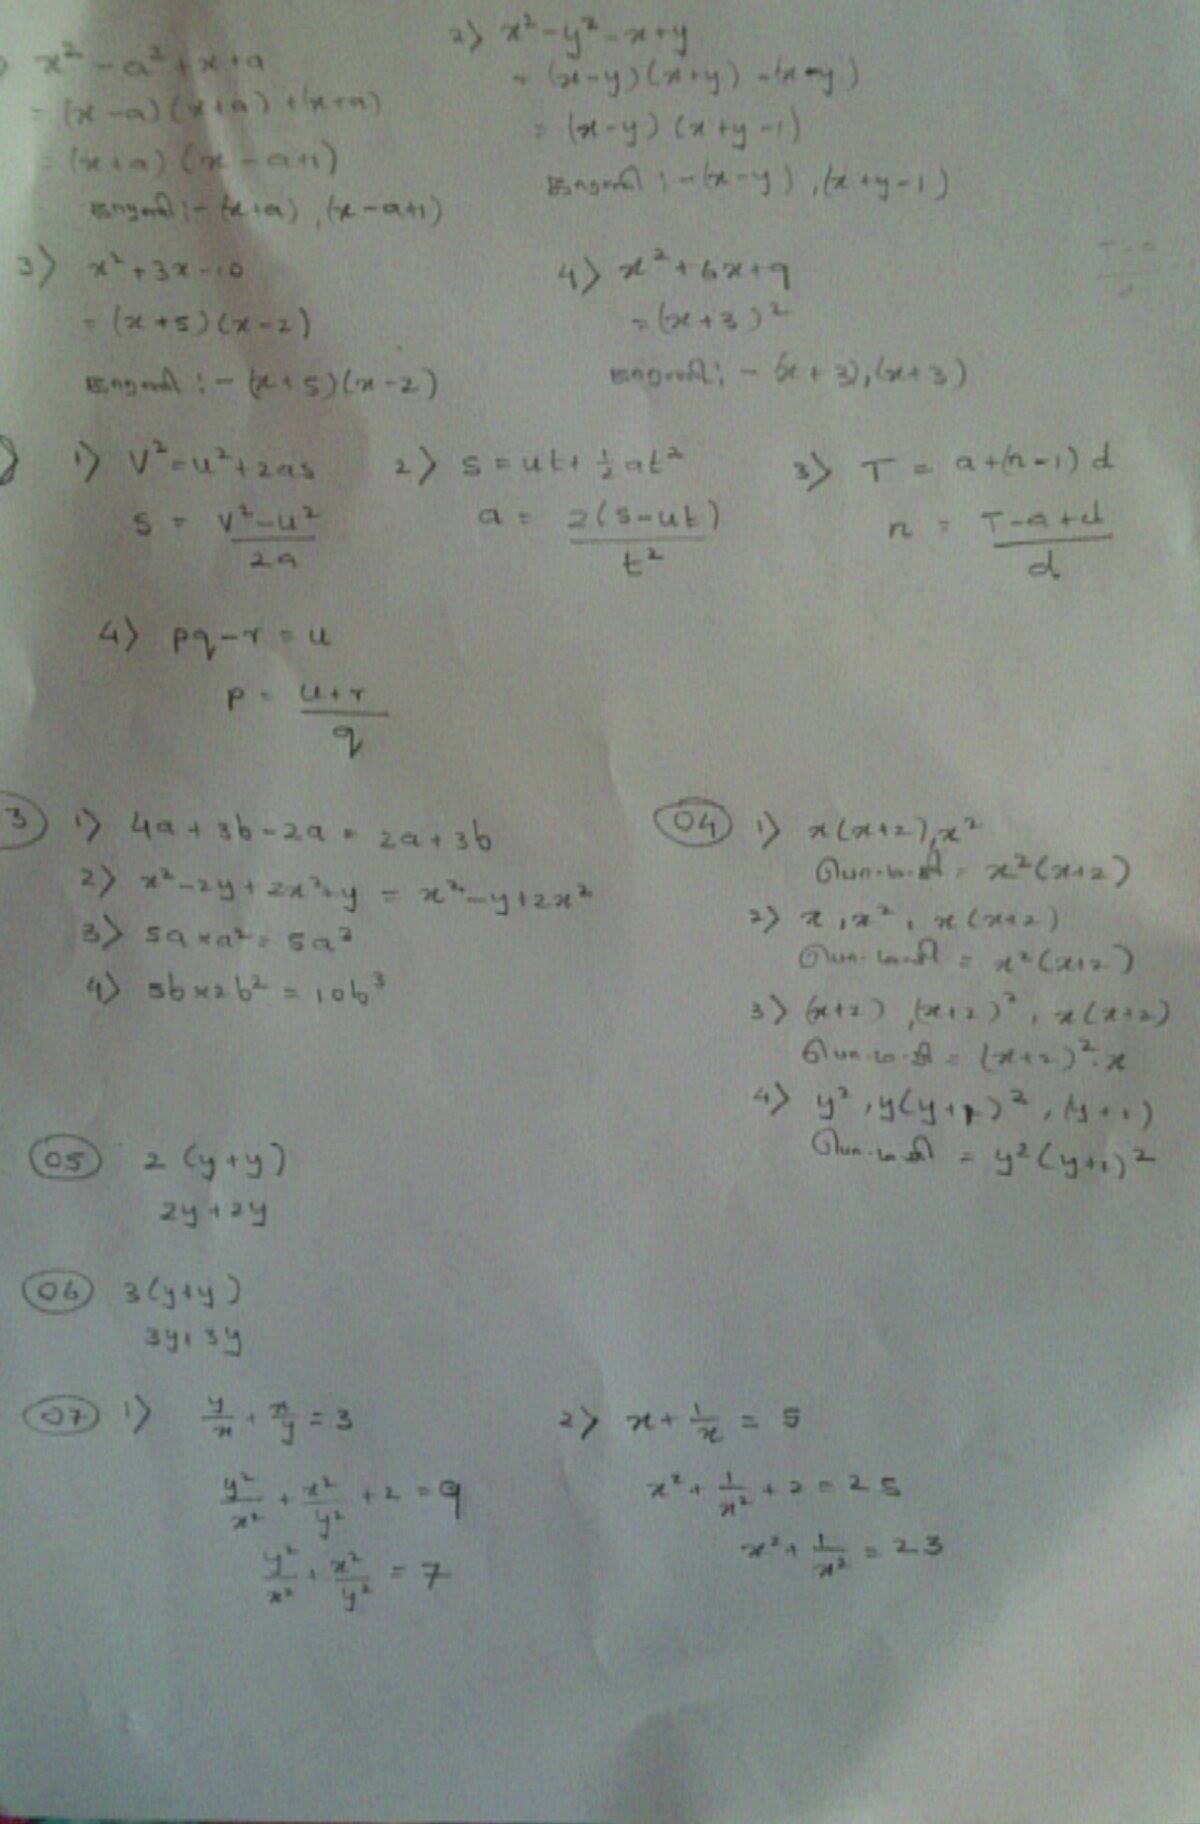 x² - a² + x + a
= (x - a) (x + a) + (x + a)
= (x + a) (x - a + 1)
:- (x + a), (x - a + 1)
2) x² - y² - x + y
= (x - y) (x + y) - (x - y)
= (x - y) (x + y - 1)
:- (x - y), (x + y - 1)
3) x² + 3x - 10
= (x + 5) (x - 2)
:- (x + 5) (x - 2)
4) x² + 6x + 9
= (x + 3)²
:- (x + 3), (x + 3)
1) V² = u² + 2as
s = (V² - u²)/2a
2) s = ut + ½ at²
a = 2(s - ut)/t²
3) T = a + (n - 1) d
n = (T - a + d)/d
4) pq - r = u
p = (u + r)/q
3 1) 4a + 3b - 2a = 2a + 3b
2) x² - 2y + 2x² + y = x² - y + 2x²
3) 5a × a² = 5a³
4) 5b × 2b² = 10b³
04 1) x(x + 2), x²
பொ.ம.சி = x² (x + 2)
2) x, x², x (x + 2)
பொ.ம.சி = x² (x + 2)
3) (x + 2), (x + 2)², x (x + 2)
பொ.ம.சி = (x + 2)² . x
4) y², y(y + 1)², (y + 1)
பொ.ம.சி = y² (y + 1)²
05 2 (y + y)
2y + 2y
06 3 (y + y)
3y + 3y
07 1) y/x + x/y = 3
y²/x² + x²/y² + 2 = 9
y²/x² + x²/y² = 7
2) x + 1/x = 5
x² + 1/x² + 2 = 25
x² + 1/x² = 23